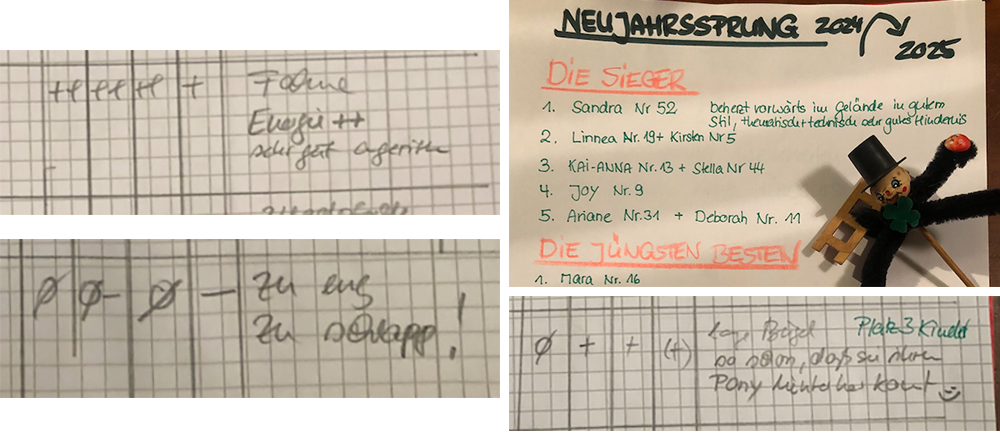 ++ ++ ++ +
Energie ++
sehr gut
Ø Ø- Ø — zu eng
zu schlapp!
NEUJAHRSSPRUNG 2024
2025
DIE SIEGER
1. Sandra Nr 52 beherzt vorwärts im Gelände in gutem
Stil, thematisch + technisch sehr gutes Hindernis
2. Linnea Nr. 19 + Kirsten Nr 5
3. KAI-ANNA Nr. 13 + Stella Nr 44
4. JOY Nr. 9
5. Ariane Nr. 31 + Deborah Nr. 11
DIE JÜNGSTEN BESTEN
1. Mara Nr. 16
Ø + + (+) Bügel Platz 3 Kinder
so schön, daß sie ihrem
Pony hinterher kommt